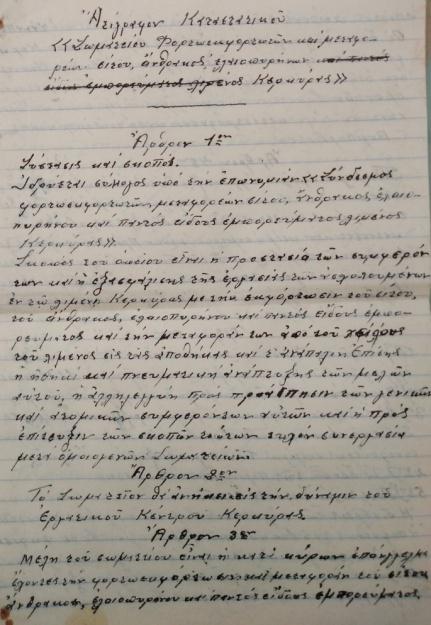 Ἀντίγραφον Καταστατικοῦ
<<Σωματείου Φορτοεκφορτωτῶν καὶ μεταφο-
ρέων σίτου, ἄνθρακος, ἐλαιοπυρήνων καὶ παντὸς
εἴδους ἐμπορεύματος λιμένος Κερκύρας>>
Ἄρθρον 1ον
Σύστασις καὶ σκοπός.
Ἱδρύεται σύλλογος ὑπὸ τὴν ἐπωνυμίαν <<Σύνδεσμος
φορτοεκφορτωτῶν, μεταφορέων σίτου, ἄνθρακος, ἐλαιο-
πυρήνου καὶ παντὸς εἴδους ἐμπορεύματος λιμένος
Κερκύρας>>.
Σκοπὸς τοῦ ὁποίου εἶναι ἡ προστασία τῶν συμφερόν
των καὶ ἡ ἐξασφάλισις τῆς ἐργασίας τῶν ἀσχολουμένων
ἐν τῷ λιμένι Κερκύρας μὲ τὴν ἐκφόρτωσιν τοῦ σίτου,
τοῦ ἄνθρακος, ἐλαιοπυρήνου καὶ παντὸς εἴδους ἐμπο-
ρεύματος καὶ τὴν μεταφοράν των ἀπὸ τοῦ χείλους
τοῦ λιμένος εἰς τὰς ἀποθήκας καὶ τ' ἀνάπαλιν. Ἐπίσης
ἡ ἠθικὴ καὶ πνευματικὴ ἀνάπτυξις τῶν μελῶν
αὐτοῦ, ἡ ἀλληλεγγύη πρὸς προάσπισιν τῶν γενικῶν
καὶ ἀτομικῶν συμφερόντων αὐτῶν καὶ ἡ πρὸς
ἐπίτευξιν τῶν σκοπῶν τούτων συνεργασία
μετὰ ὁμοιογενῶν Σωματείων.
Ἄρθρον 2ον
Τὸ Σωματεῖον θὰ ἀνήκει εἰς τὴν δύναμιν τοῦ
Ἐργατικοῦ Κέντρου Κερκύρας.
Ἄρθρον 3ον
Μέλη τοῦ σωματείου εἶναι ἡ κατὰ κύριον ἐπάγγελμα
φορτοεκφόρτωσιν καὶ μεταφορὰν τοῦ σίτου
ἄνθρακος, ἐλαιοπυρήνου καὶ παντὸς εἴδους ἐμπορεύματος